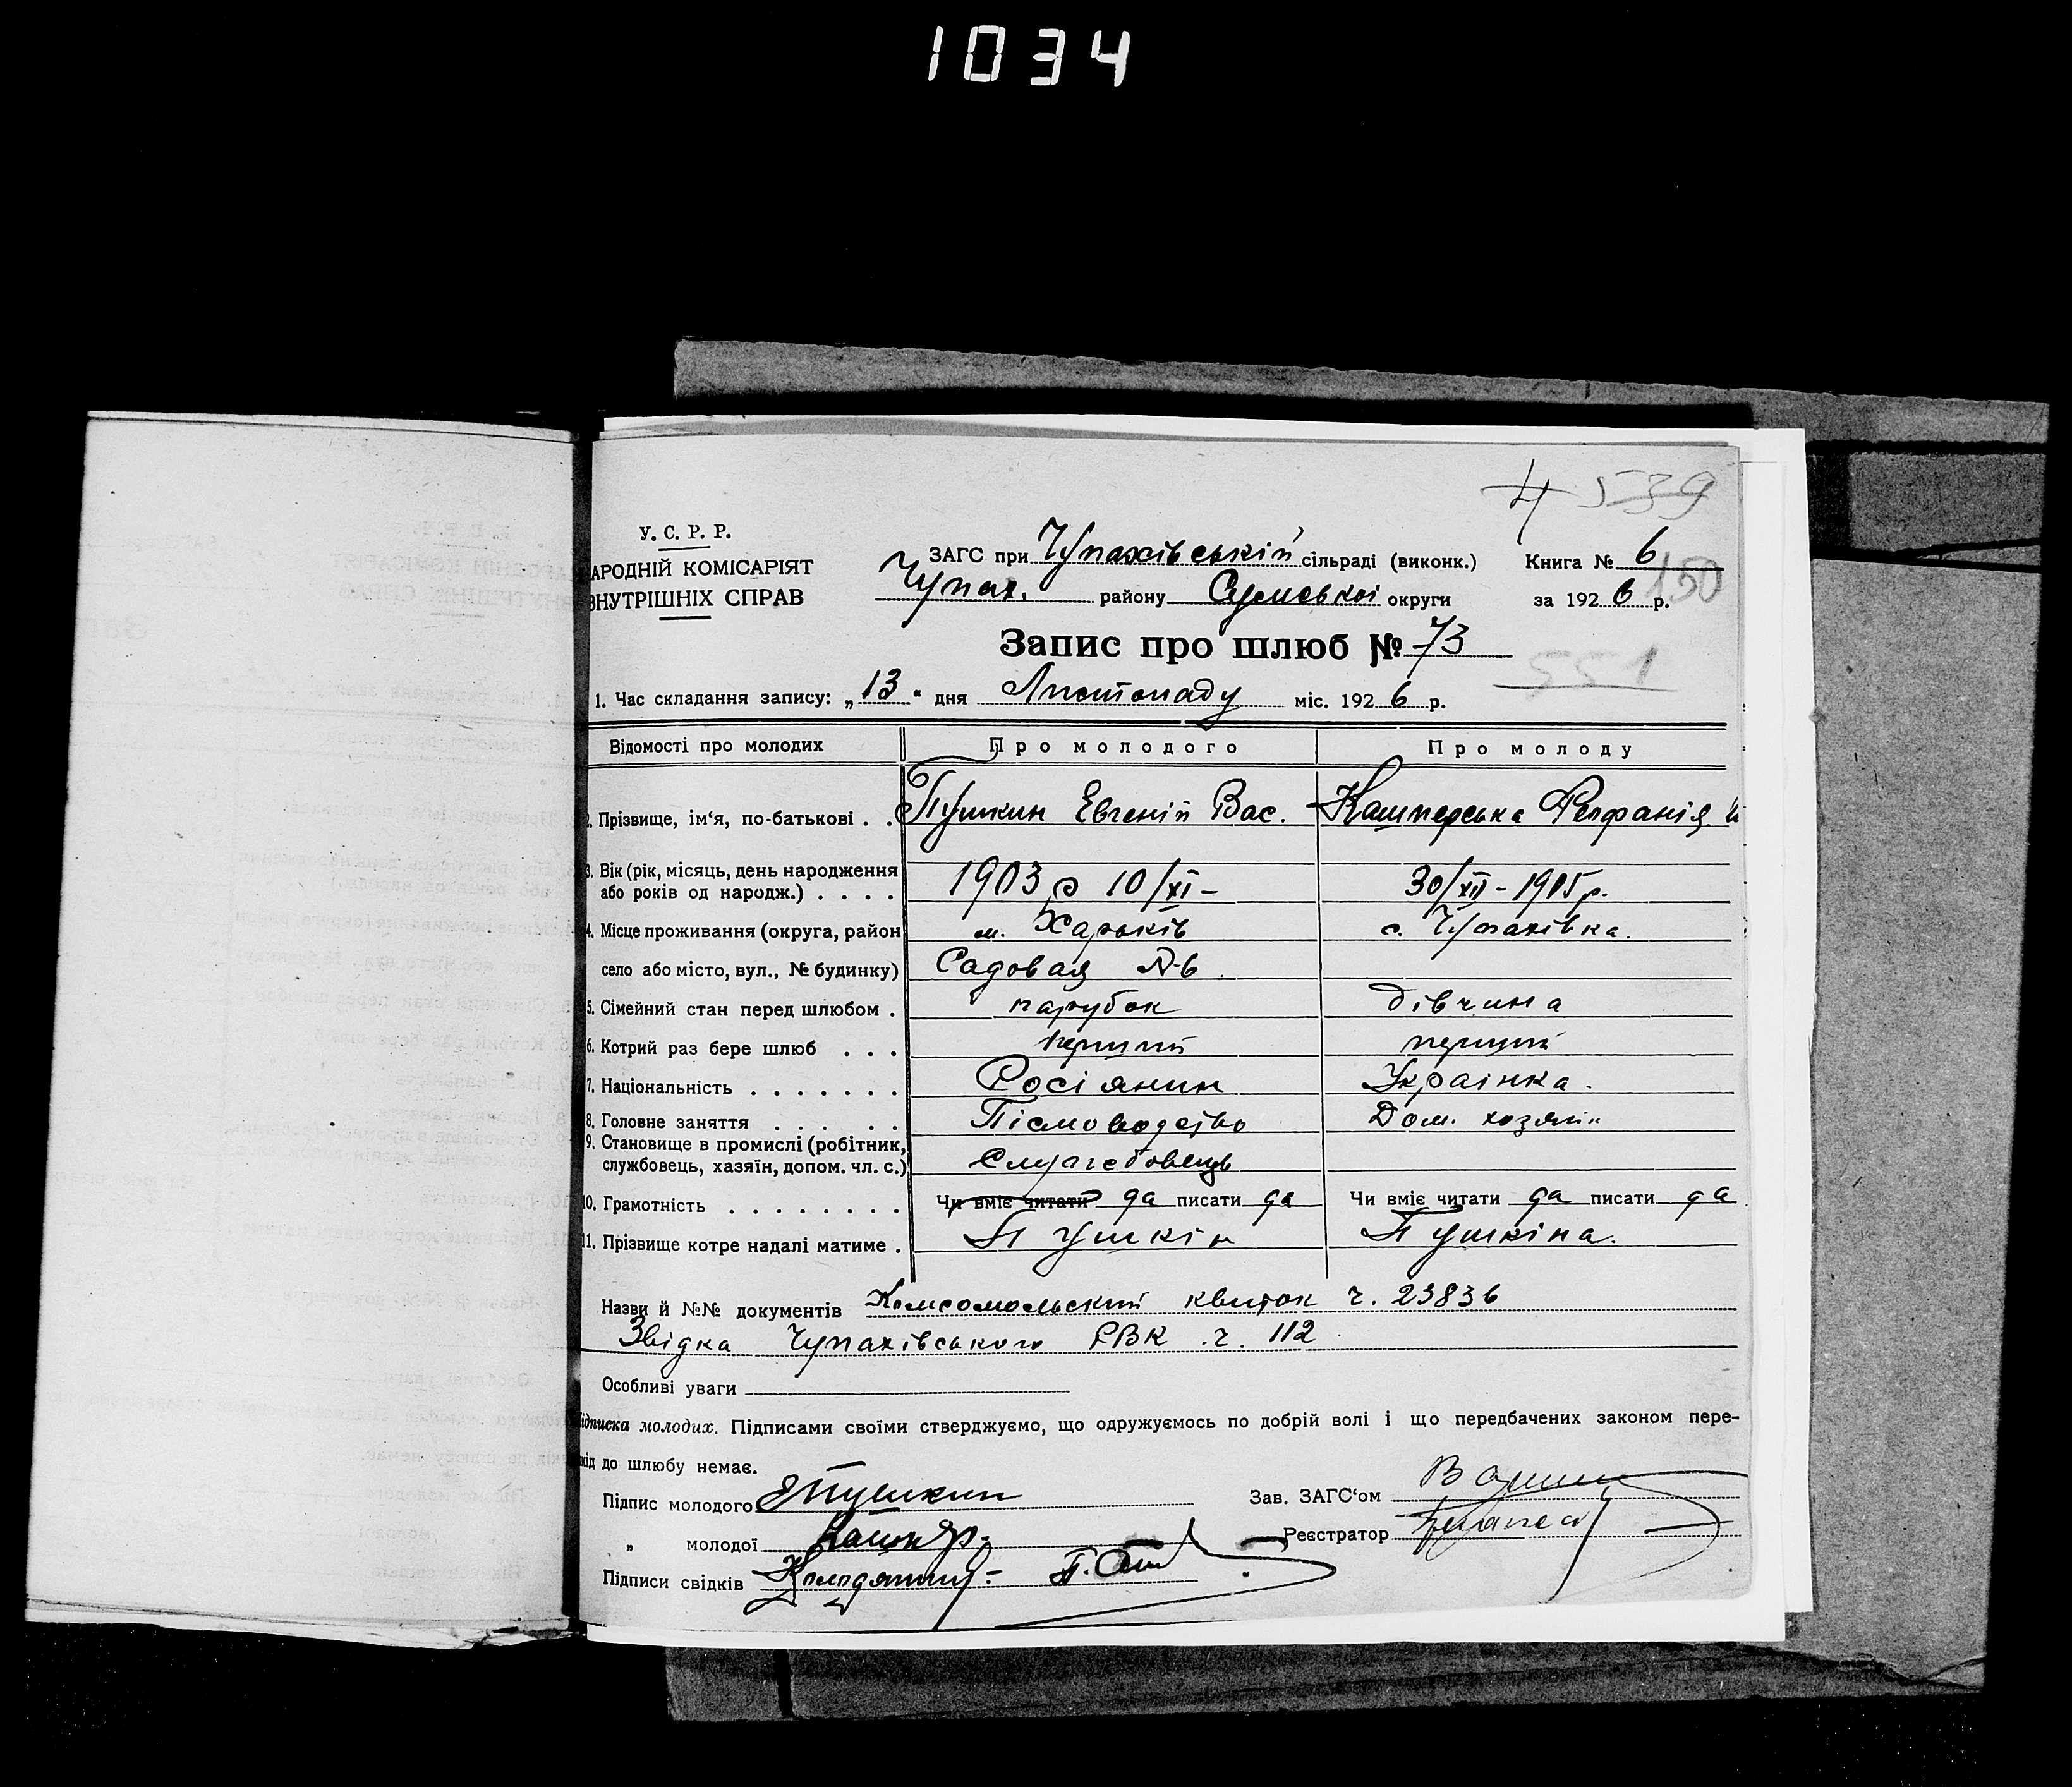 1034
4 539
У. С. Р. Р.
АРОДНІЙ КОМІСАРІЯТ
ВНУТРІШНІХ СПРАВ
ЗАГС при Чупахівській сільраді (виконк.) Книга № 6
Чупах. району Сумської округи за 1926 р.
150
Запис про шлюб № 73
551
1. Час складання запису: „13“ дня Листопаду міс. 1926 р.
Відомості про молодих Про молодого Про молоду
2. Прізвище, ім‘я, по-батькові . . Пушкин Евгеній Вас. Кашперська
3. Вік (рік, місяць, день народження 1903 р 10/XI – 30/XII – 1905 р.
або років од народж.) . . . .
4. Місце проживання (округа, район м. Харьків с. Чупахівка.
село або місто, вул., № будинку) Садовая №6
5. Сімейний стан перед шлюбом . парубок дівчина
6. Котрий раз бере шлюб . . . перший перший
7. Національність . . . . . . . Росіянин Українка.
8. Головне заняття . . . . . Пісмоводство Дом. хозяйн
9. Становище в промислі (робітник,
службовець, хазяїн, допом. чл. с.) Служебовець
10. Грамотність . . . . . . . . Чи вміє читати да писати да Чи вміє читати да писати да
11. Прізвище котре надалі матиме . Пушкін Пушкіна.
Назви й №№ документів Комсомольский квиток ч. 23836
Звідка Чупахівського РВК ч. 112
Особливі уваги
ідписка молодих. Підписами своїми стверджуємо, що одружуємось по добрій волі і що передбачених законом пере-
кід до шлюбу немає.
Підпис молодого ЕПушкин Зав. ЗАГС‘ом
„ молодої Реєстратор
Підписи свідків